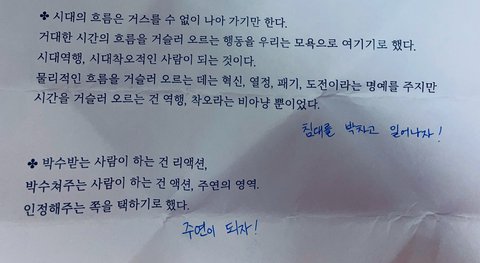 ✤ 시대의 흐름은 거스를 수 없이 나아 가기만 한다.
거대한 시간의 흐름을 거슬러 오르는 행동을 우리는 모욕으로 여기기로 했다.
시대역행, 시대착오적인 사람이 되는 것이다.
물리적인 흐름을 거슬러 오르는 데는 혁신, 열정, 패기, 도전이라는 명예를 주지만
시간을 거슬러 오르는 건 역행, 착오라는 비아냥 뿐이었다.
침대를 박차고 일어나자!
✤ 박수받는 사람이 하는 건 리액션,
박수쳐주는 사람이 하는 건 액션, 주연의 영역.
인정해주는 쪽을 택하기로 했다.
주연이 되자!